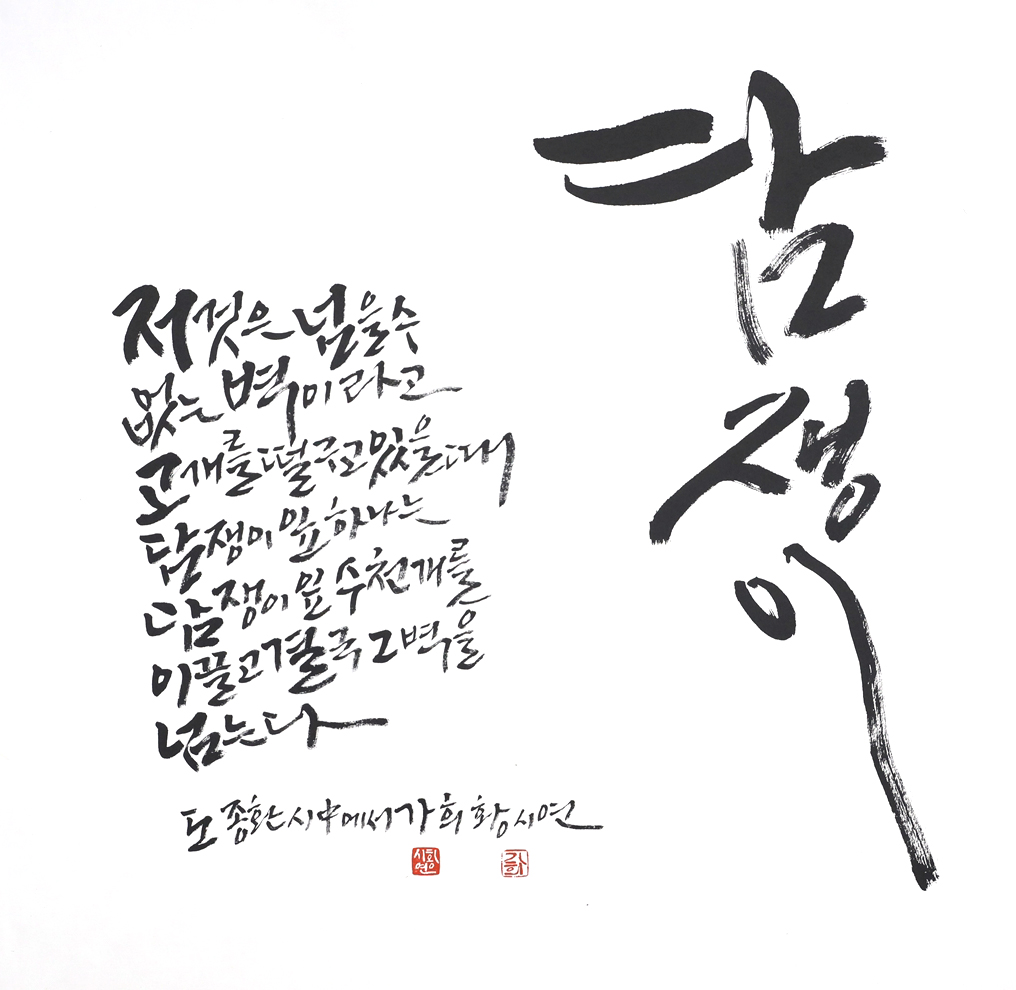 담쟁이
저것은 넘을 수
없는 벽이라고
고개를 떨구고 있을 때
담쟁이 잎 하나는
담쟁이 잎 수천 개를
이끌고 결국 그 벽을
넘는다
도종환 시 中에서 가희 황시연
황시연
가희